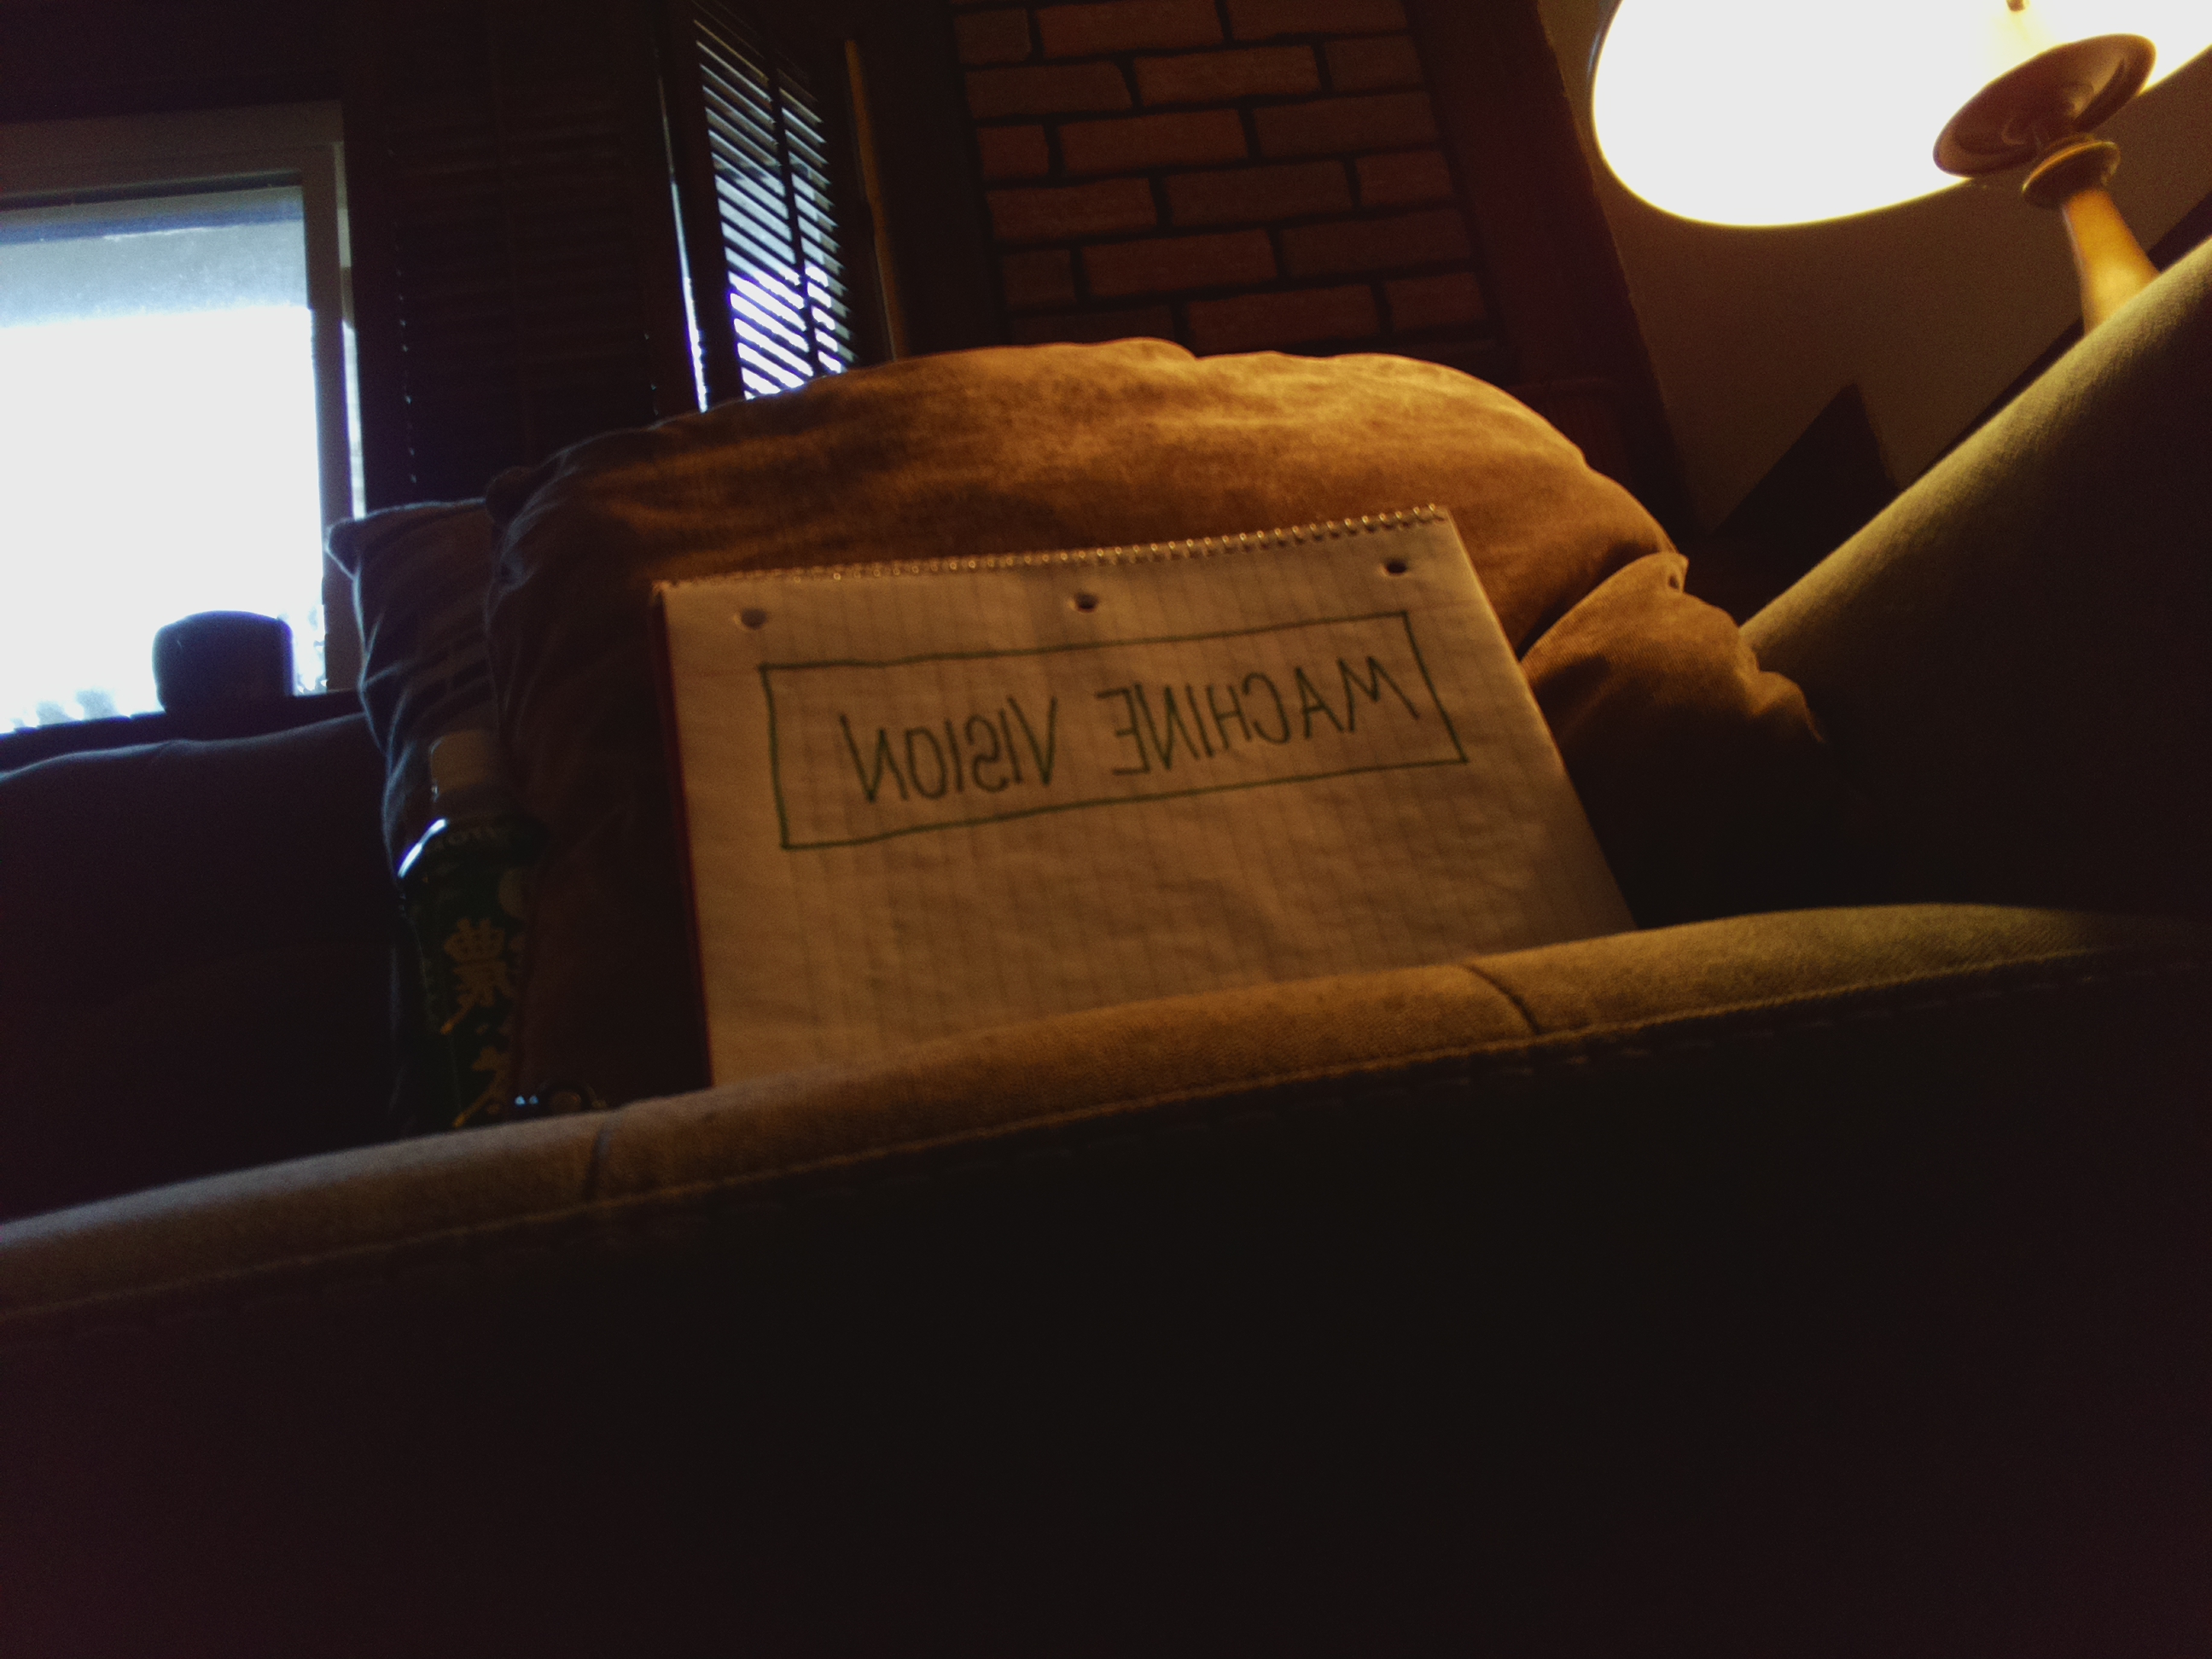 MACHINE VISION
濃い茶